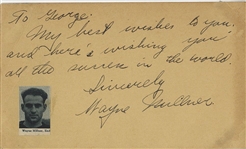 To George:
My best wishes to you
and here's wishing you
all the success in the world.
Sincerely
Wayne
Wayne